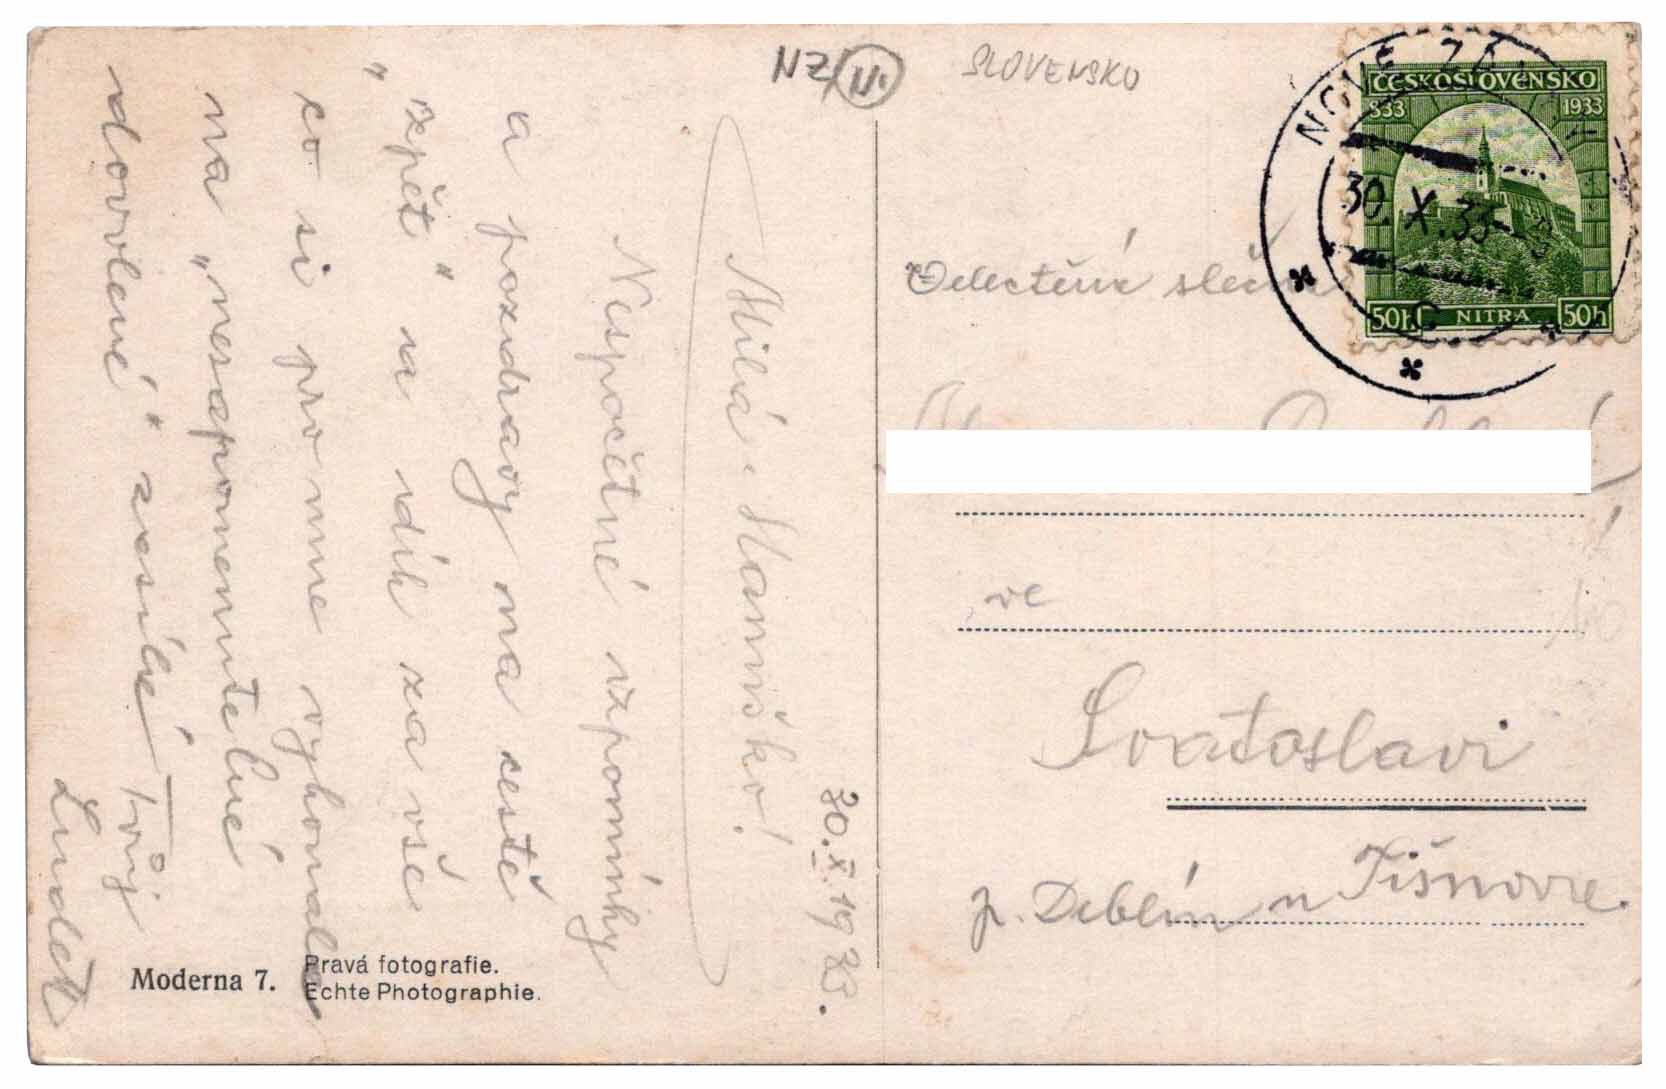 NZ/N.
SLOVENSKO
ČESKOSLOVENSKO
833 1933
NOVÉ ZÁ
30. X. 33
50h NITRA 50h
30. X. 1933.
Milá Slaniško!
Nespočetné vzpomínky
a pozdravy na cestě
„zpět" a dík za vše
co si pro mne vykonala
na „nezapomenutelné
dovolené" zasílá Tvůj
Luděk
Velectěná slečna
ve
Svatoslavi
p. Deblín u Tišnova.
Moderna 7.
Pravá fotografie.
Echte Photographie.